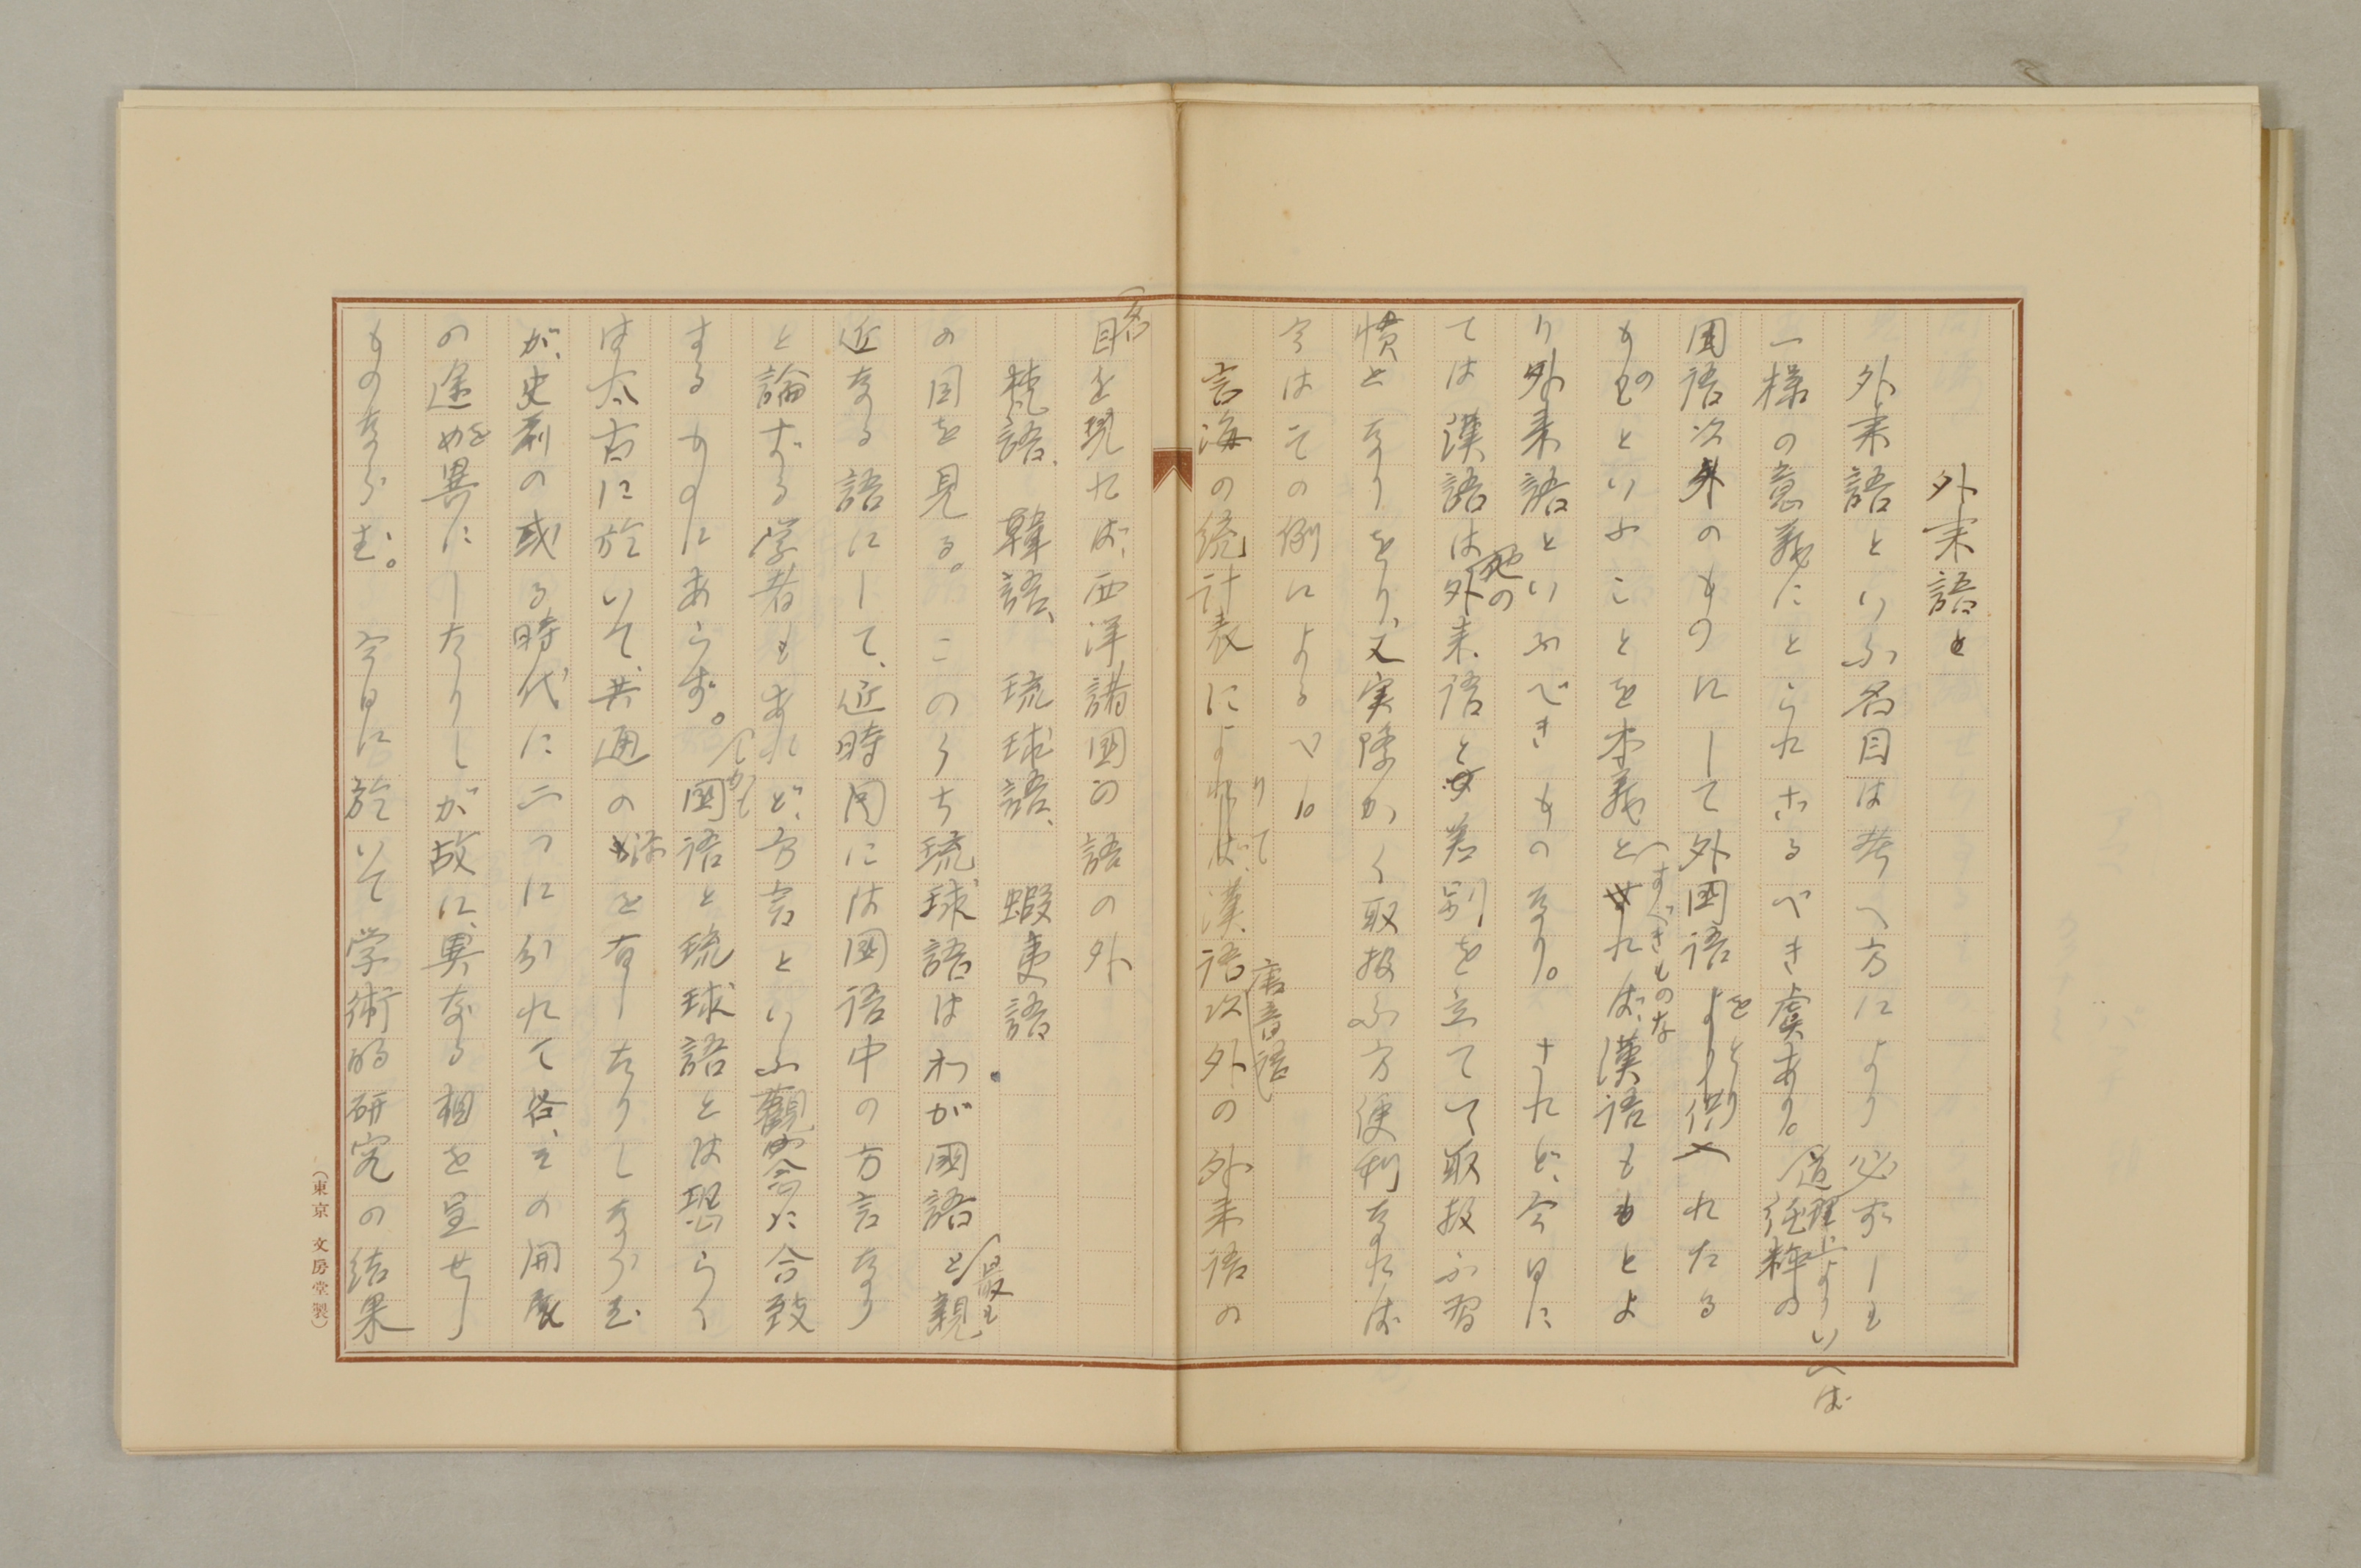 外来語と
外来語といふ名目は考へ方により必ずしも
一様の意義にとられさるべき虞あり。道理よりいへば純粋の
国語以外のものにして外国語をとり供入れたる
ものといふことを本義とすべきものなれば、漢語ももとよ
り外来語といふべきものなり。されど、今日に
ては漢語は他の外来語と差別を立てて取扱ふ習
慣となりをり、又実際かく取扱ふ方便利なれば
今はその例によるべし。
言海の統計表によりて漢語、唐音語以外の外来語の
名目を見れば、西洋諸国の語の外
梵語、韓語、琉球語、蝦夷語
の目を見る。このうち琉球語はわが国語と最も親
近なる語にして、近時間には国語中の方言なり
と論ずる学者もあれど、方言といふ観念に合致
するものにあらず。しかも国語と琉球語とは恐らく
は太古に於いて、共通の源を有したりしならむ
が、史前の或る時代に二つに分れて各、その開展
の途を異にしたりしが故に、異なる相を呈せし
ものならむ。今日に於いて学術的研究の結果
(東京 文房堂製)